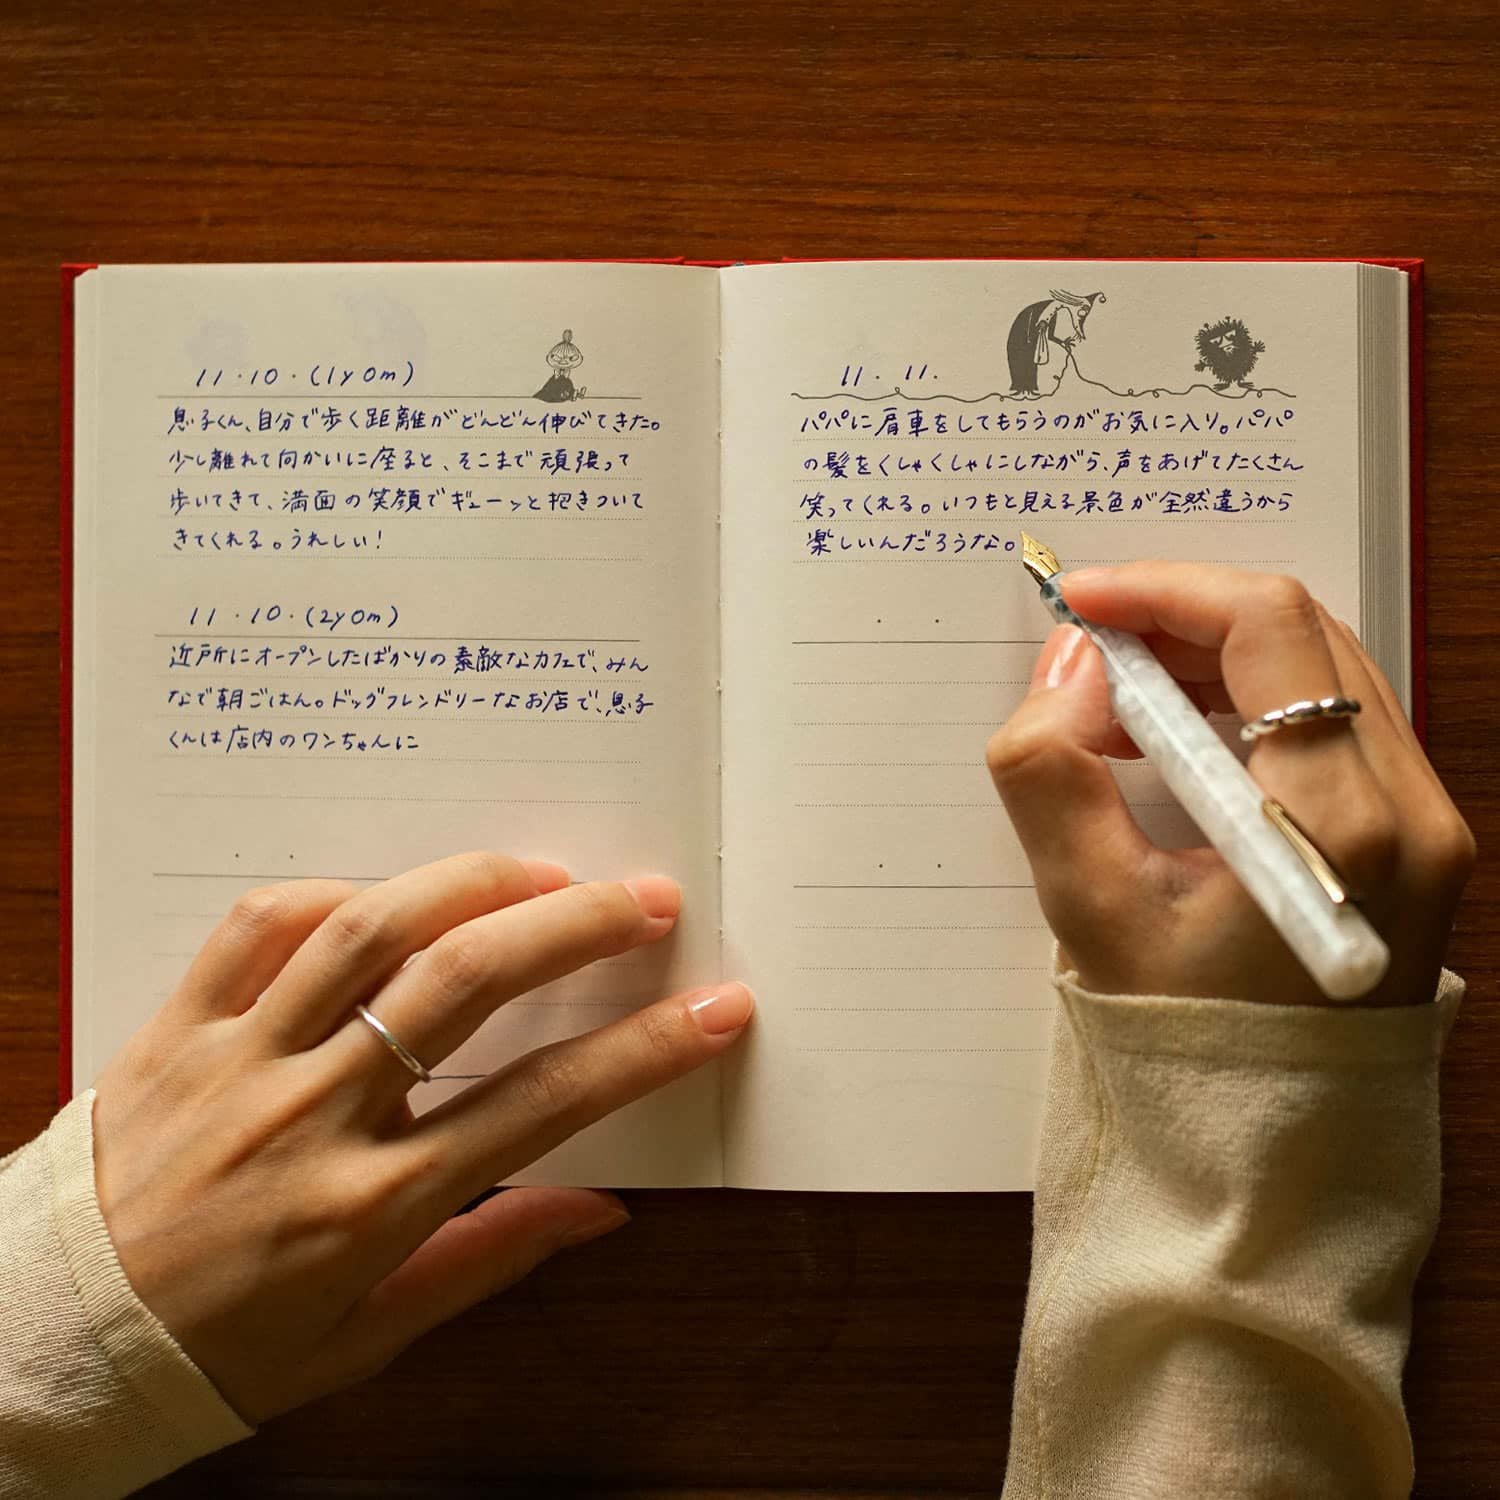 11・10・(1y0m)
息子くん、自分で歩く距離がどんどん伸びてきた。
少し離れて向かいに座ると、そこまで頑張って
歩いてきて、満面の笑顔でギューッと抱きついて
きてくれる。うれしい！
11・10・(2y0m)
近所にオープンしたばかりの素敵なカフェで、みん
なで朝ごはん。ドッグフレンドリーなお店で、息子
くんは店内のワンちゃんに
11. 11.
パパに肩車をしてもらうのがお気に入り。パパ
の髪をくしゃくしゃにしながら、声をあげてたくさん
笑ってくれる。いつもと見える景色が全然違うから
楽しいんだろうな。